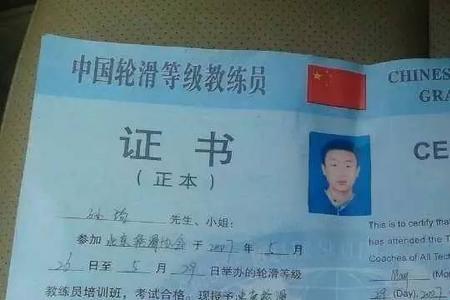 中国轮滑等级教练员
证书
（正本）
先生、小姐:
参加 北京轮滑协会 于 2007 年 5 月
26 日至 5 月 29 日举办的轮滑等级
教练员培训班，考试合格。现授予
CHINES
GRA
CE
This is to certify tha
has attended the T
Coaches of All Tech
May (Mon
(Day), 2007